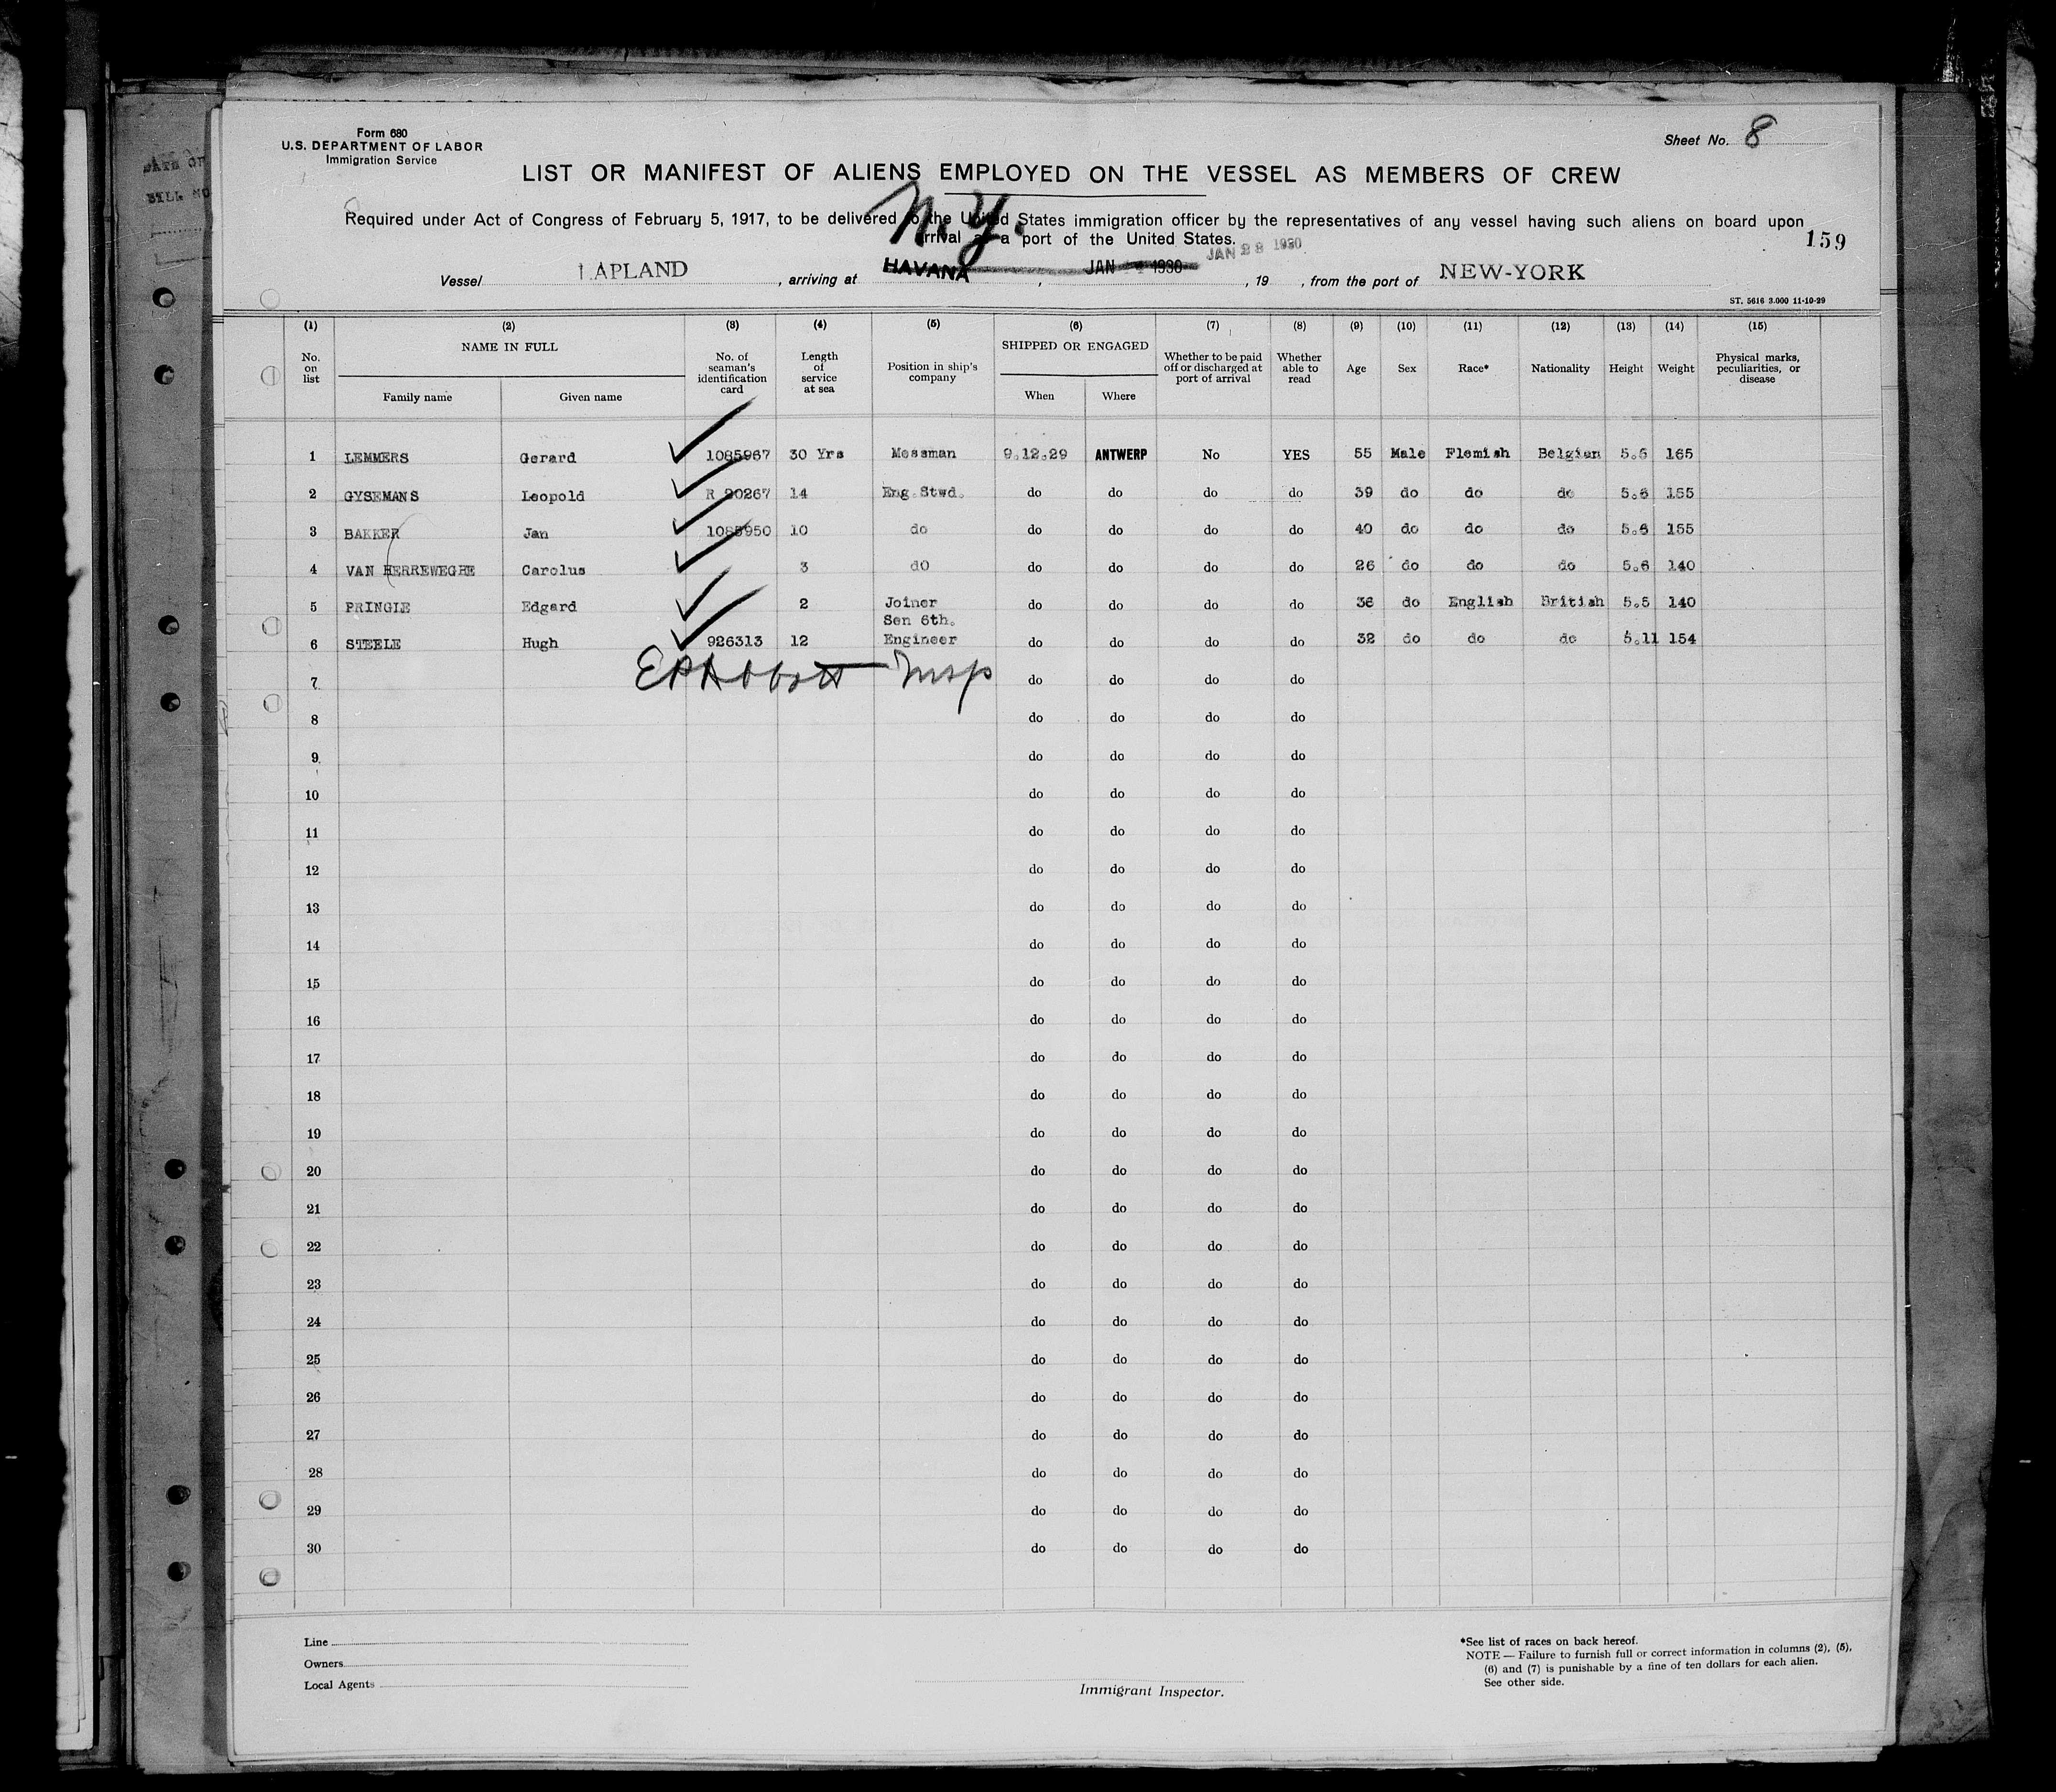 Form 680
U.S. DEPARTMENT OF LABOR
Immigration Service
Sheet No. 8
LIST OR MANIFEST OF ALIENS EMPLOYED ON THE VESSEL AS MEMBERS OF CREW
Required under Act of Congress of February 5, 1917, to be delivered to the United States immigration officer by the representatives of any vessel having such aliens on board upon
arrival at a port of the United States.
N.Y.
159
JAN 28 1930
Vessel LAPLAND, arriving at HAVANA, JAN 1930, 19 , from the port of NEW-YORK
ST. 5616 3.000 11-10-29
(1) (2) (3) (4) (5) (6) (7) (8) (9) (10) (11) (12) (13) (14) (15)
No. on list NAME IN FULL Family name Given name No. of seaman's identification card Length of service at sea Position in ship's company SHIPPED OR ENGAGED When Where Whether to be paid off or discharged at port of arrival Whether able to read Age Sex Race* Nationality Height Weight Physical marks, peculiarities, or disease
1 LEMMERS Gerard 1085967 30 Yrs Messman 9.12.29 ANTWERP No YES 55 Male Flemish Belgian 5.6 165
2 GYSEMANS Leopold R 90267 14 Eng Stwd. do do do do 39 do do do 5.6 155
3 BAKKER Jan 1085950 10 do do do do do 40 do do do 5.6 155
4 VAN HERREWEGHE Carolus 3 dO do do do do 26 do do do 5.6 140
5 PRINGLE Edgard 2 Joiner do do do do 36 do English British 5.5 140
6 STEELE Hugh 926313 12 Sen 6th. Engineer do do do do 32 do do do 5.11 154
7 do do do do
EA Abbott Insp
8 do do do do
9 do do do do
10 do do do do
11 do do do do
12 do do do do
13 do do do do
14 do do do do
15 do do do do
16 do do do do
17 do do do do
18 do do do do
19 do do do do
20 do do do do
21 do do do do
22 do do do do
23 do do do do
24 do do do do
25 do do do do
26 do do do do
27 do do do do
28 do do do do
29 do do do do
30 do do do do
Line
Owners
Local Agents
Immigrant Inspector.
*See list of races on back hereof.
NOTE — Failure to furnish full or correct information in columns (2), (5),
(6) and (7) is punishable by a fine of ten dollars for each alien.
See other side.